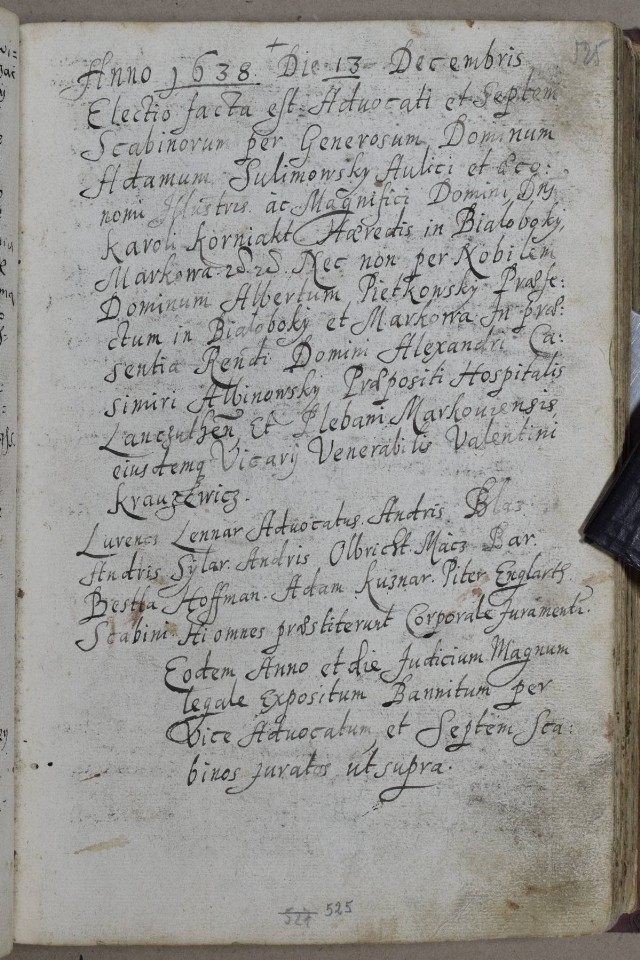 525
Anno 1638. Die 13 Decembris
Electio facta est Advocati et Septem
Scabinorum per Generosum Dominum
Adamum Sulimowsky Aulici et Æco:
nomi Illustris ac Magnifici Domini Dnj
Karoli Korniakt Hæredis in Bialoboky,
Markowa. Nec non per Nobilem
Dominum Albertum Pietkowsky Præfe:
ctum in Bialoboky et Markowa In præ:
sentia Rendi Domini Alexandri Ca:
simiri Albinowsky Præpositi Hospitalis
Lanczuthen Et Plebani Markoviensis
eiusdemq Vicarÿ Venerabilis Valentini
Krauzewicz.
Lurencs Lennar Advocatus. Andris Blas
Andris Sylar. Andris Olbricht. Macz Bar.
Bestla Hoffman. Adam Kuznar. Piter Englarth
Scabini. Hi omnes præstiterunt Corporale Juramentu.
Eodem Anno et die Judicium Magnum
legale Expositum Bannitum per
Vice Advocatum et Septem Sca:
binos juratos ut supra.
521 525